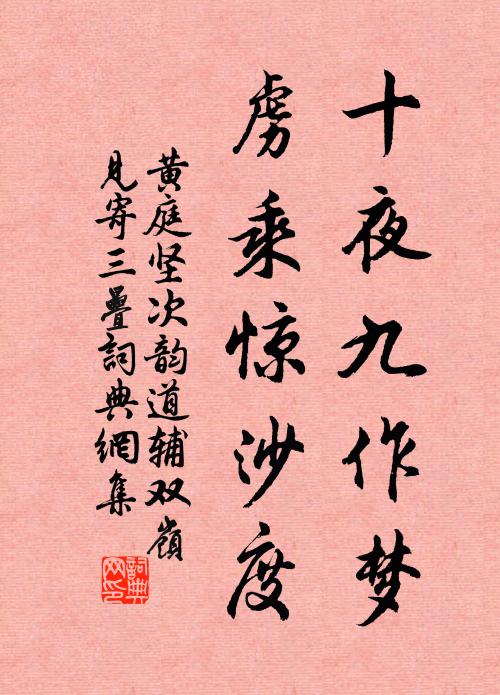 十夜九作梦
虏乘惊沙度
黄庭坚次韵道辅双嶺
见寄三叠詞典網集
詞典
网印